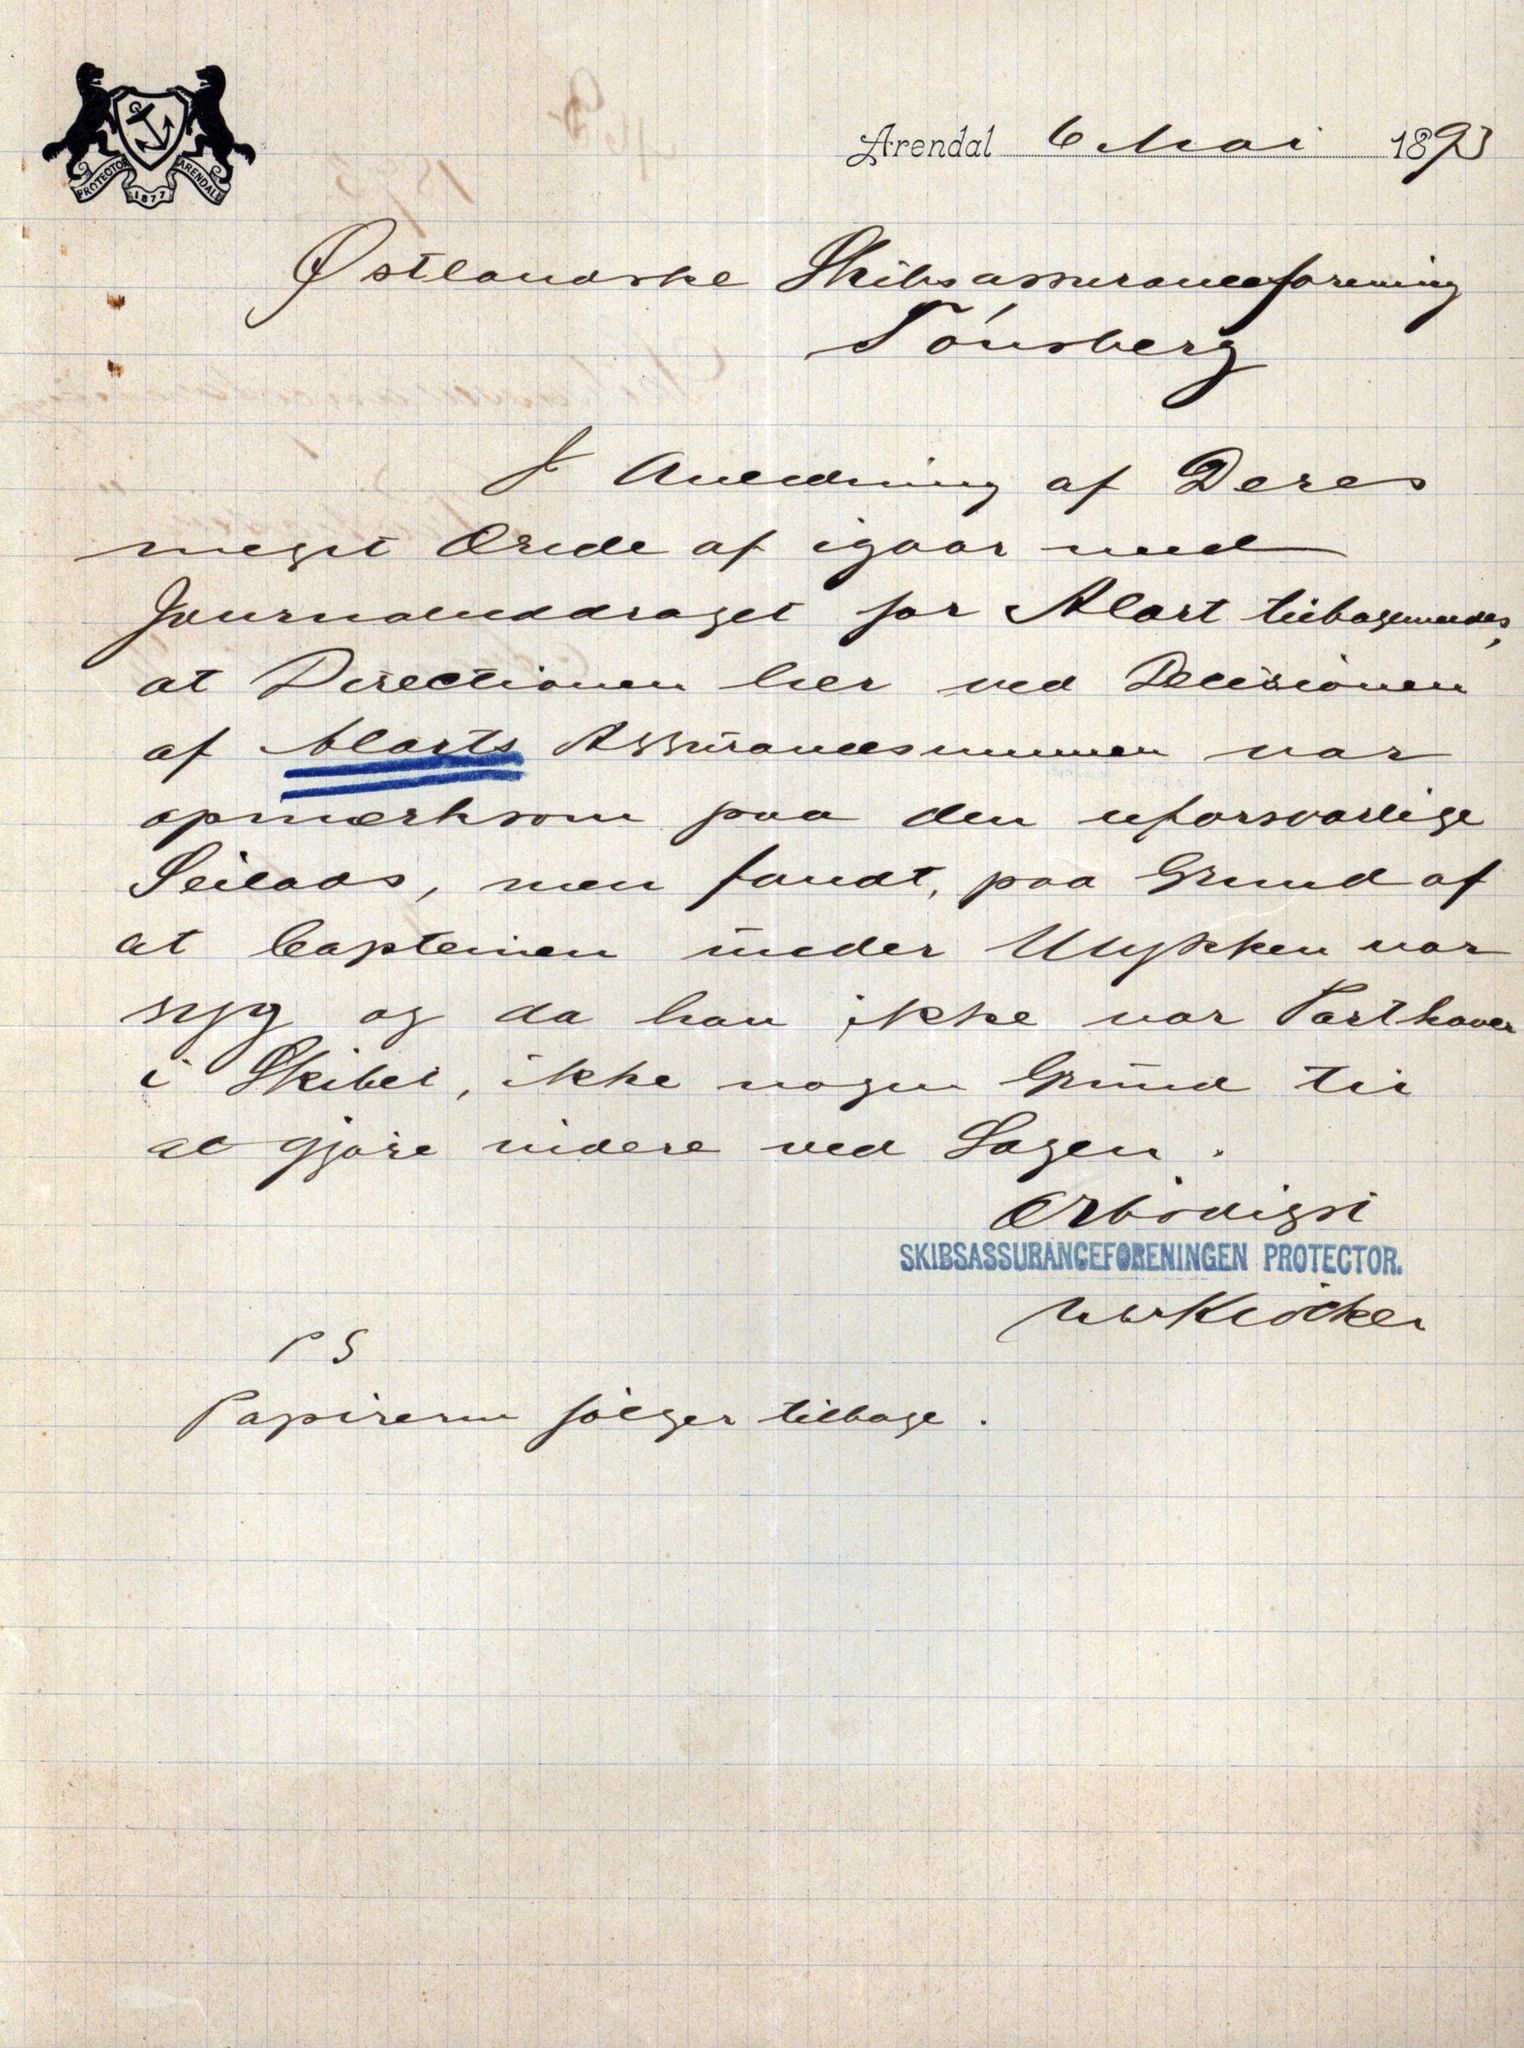 PROTECTOR ARENDAL
1877
Arendal 6 Mai 1893
Østlandske Skibsassuranceforening
Tönsberg
I Anledning af Deres
meget Ærede af igaar med
Journaluddraget for Alart tilbagemeldes,
at Directionen her ved Decisionen
af Alarts Assurancesummen var
opmærksom paa den uforsvarlige
Seilads, men fandt, paa Grund af
at Capteinen under Ulykken var
syg og da han ikke var Parthaver
i Skibet, ikke nogen Grund til
at gjøre videre ved Sagen.
Ærbödigst
SKIBSASSURANCEFORENINGEN PROTECTOR.
Klöcker
PS
Papirerne fölger tilbage.